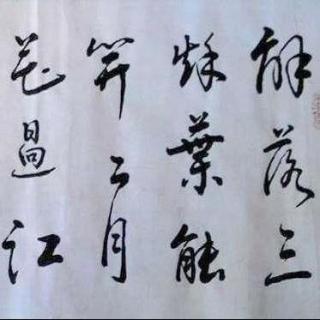 解落三
秋葉能
開二月
花過江